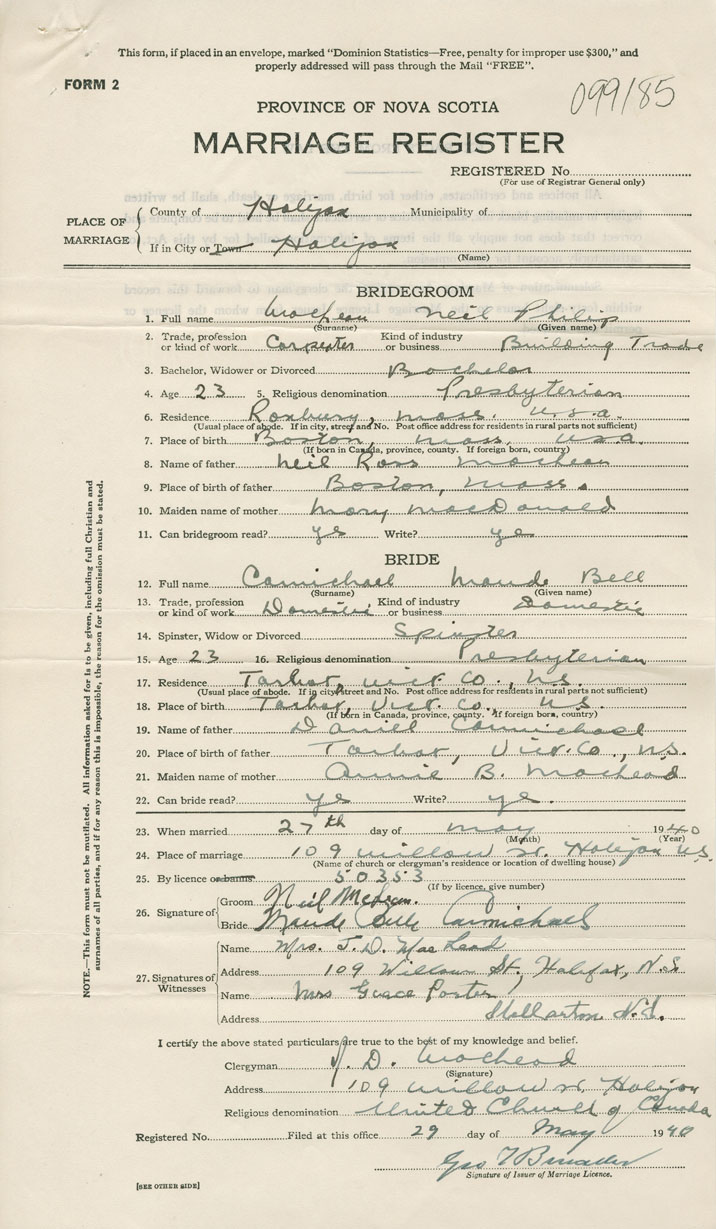 This form, if placed in an envelope, marked "Dominion Statistics—Free, penalty for improper use $300," and
properly addressed will pass through the Mail "FREE".
FORM 2
099185
PROVINCE OF NOVA SCOTIA
MARRIAGE REGISTER
REGISTERED No.
(For use of Registrar General only)
PLACE OF MARRIAGE
County of Halifax Municipality of
If in City or Town Halifax
(Name)
BRIDEGROOM
1. Full name MacLean Neil Philip
(Surname) (Given name)
2. Trade, profession or kind of work Carpenter Kind of industry or business Building Trade
3. Bachelor, Widower or Divorced Bachelor
4. Age 23 5. Religious denomination Presbyterian
6. Residence Roxbury, Mass. U.S.A.
(Usual place of abode. If in city, street and No. Post office address for residents in rural parts not sufficient)
7. Place of birth Boston, Mass, U.S.A.
(If born in Canada, province, county. If foreign born, country)
8. Name of father Neil Ross MacLean
9. Place of birth of father Boston, Mass.
10. Maiden name of mother Mary MacDonald
11. Can bridegroom read? yes Write? yes
BRIDE
12. Full name Carmichael Maude Bell
(Surname) (Given name)
13. Trade, profession or kind of work Domestic Kind of industry or business Domestic
14. Spinster, Widow or Divorced Spinster
15. Age 23 16. Religious denomination Presbyterian
17. Residence Tarbot, Vict. Co., N.S.
(Usual place of abode. If in city street and No. Post office address for residents in rural parts not sufficient)
18. Place of birth Tarbot, Vict. Co. N.S.
(If born in Canada, province, county. If foreign born, country)
19. Name of father Daniel Carmichael
20. Place of birth of father Tarbot, Vict. Co., N.S.
21. Maiden name of mother Annie B. MacLeod
22. Can bride read? yes Write? yes.
23. When married 27th day of May 1940
(Month) (Year)
24. Place of marriage 109 Willow St. Halifax N.S.
(Name of church or clergyman's residence or location of dwelling house)
25. By licence or banns 50353
(If by licence, give number)
26. Signature of
Groom Neil McLean.
Bride Maude Carmichael
27. Signatures of Witnesses
Name Mrs. J. D. MacLeod
Address 109 Willow St., Halifax, N.S
Name Mrs Grace Porter
Address Stellarton N.S.
I certify the above stated particulars are true to the best of my knowledge and belief.
Clergyman J. D. MacLeod
(Signature)
Address 109 Willow St. Halifax
Religious denomination United Church of Canada
Registered No. Filed at this office 29 day of May 1940
Geo
Signature of Issuer of Marriage Licence.
[SEE OTHER SIDE]
NOTE.—This form must not be mutilated. All information asked for is to be given, including full Christian and
surnames of all parties, and if for any reason this is impossible, the reason for the omission must be stated.